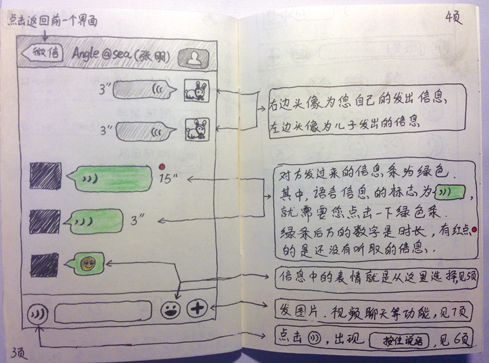 点击返回前一个界面
微信
Angle@sea(张明)
3"
3"
15"
3"
3页
4页
右边头像为您自己的发出信息
左边头像为儿子发出的信息
对方发过来的信息条为绿色.
其中,语音信息的标志为
就需要您点击一下绿色条.
绿条后方的数字是时长,有红点
的是还没有听取的信息.
信息中的表情就是从这里选择,见
发图片、视频聊天等功能,见7页
点击 ,出现 按住说话 ,见6页